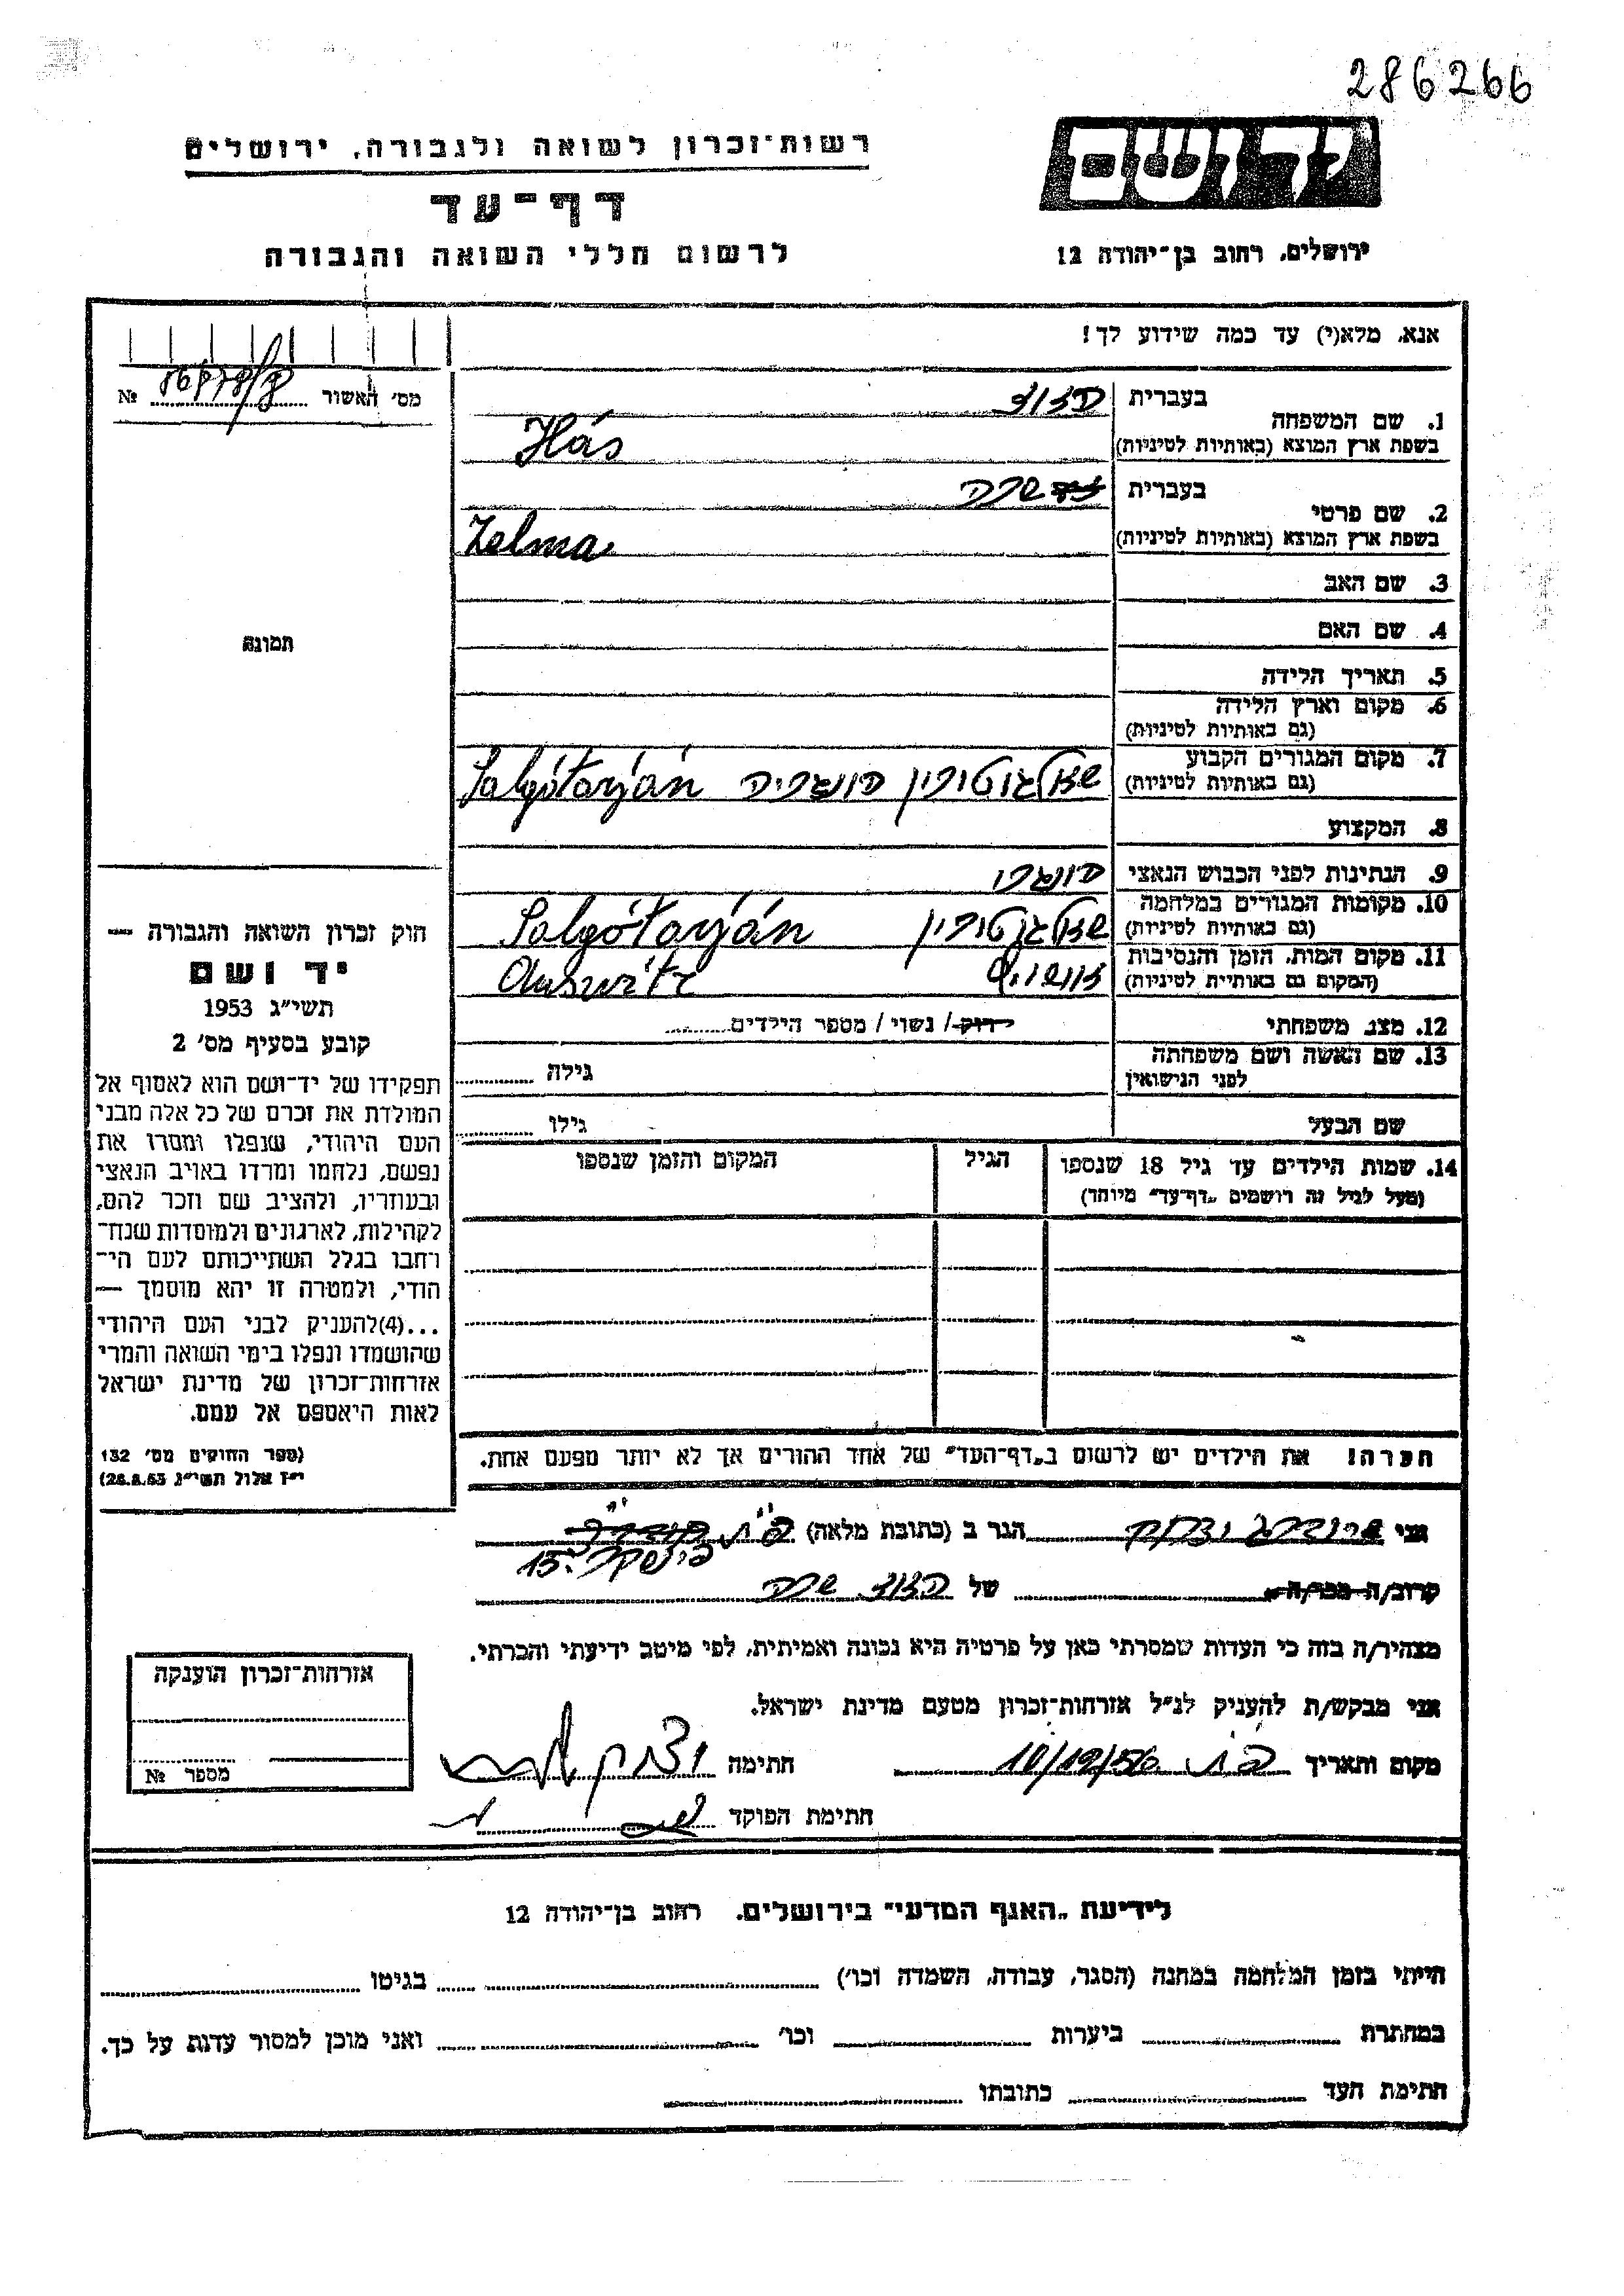 286266
רשות־זכרון לשואה ולגבורה, ירושלים
דף־עד
לרשום חללי השואה והגבורה
יד ושם
ירושלים, רחוב בן־יהודה 12
אנא, מלא(י) עד כמה שידוע לך!
מס' האשור №
תמונה
חוק זכרון השואה והגבורה —
יד ושם
תשי״ג 1953
קובע בסעיף מס' 2
תפקידו של יד־ושם הוא לאסוף אל
המולדת את זכרם של כל אלה מבני
העם היהודי, שנפלו ומסרו את
נפשם, נלחמו ומרדו באויב הנאצי
ובעוזריו, ולהציב שם וזכר להם,
לקהילות, לארגונים ולמוסדות שנח־
רחבו בגלל השתייכותם לעם הי־
הודי, ולמטרה זו יהא מוסמך —
...(4)להעניק לבני העם היהודי
שהושמדו ונפלו בימי השואה והמרי
אזרחות־זכרון של מדינת ישראל
לאות היאספם אל עמם.
(ספר החוקים מס' 132
י״ז אלול תשי״ג 28.8.53)
1. שם המשפחה בעברית
בשפת ארץ המוצא (באותיות לטיניות) Hás
2. שם פרטי בעברית שרה
בשפת ארץ המוצא (באותיות לטיניות) Zelma
3. שם האב
4. שם האם
5. תאריך הלידה
6. מקום וארץ הלידה
(גם באותיות לטיניות)
7. מקום המגורים הקבוע
(גם באותיות לטיניות) שאלגוטוריין הונגריה Salgótarján
8. המקצוע
9. הנתינות לפני הכבוש הנאצי הונגרי
10. מקומות המגורים במלחמה
(גם באותיות לטיניות) שאלגוטוריין Salgótarján
11. מקום המות, הזמן והנסיבות
(המקום גם באותיית לטיניות) אושוויץ Auswitz
12. מצב משפחתי רווק / נשוי / מספר הילדים
13. שם האשה ושם משפחתה
לפני הנישואין גילה
שם הבעל גילו
14. שמות הילדים עד גיל 18 שנספו הגיל המקום והזמן שנספו
(מעל לגיל זה רושמים „דף־עד״ מיוחד)
הערה! את הילדים יש לרשום ב„דף־העד״ של אחד ההורים אך לא יותר מפעם אחת.
אני הגר ב (כתובת מלאה) פ״ת
פינסקר 15
קרוב/ה מכר/ה של שרה
מצהיר/ה בזה כי העדות שמסרתי כאן על פרטיה היא נכונה ואמיתית, לפי מיטב ידיעתי והכרתי.
אני מבקש/ת להעניק לנ״ל אזרחות־זכרון מטעם מדינת ישראל.
מקום ותאריך פ״ת 10/12/56 חתימה
חתימת הפוקד
אזרחות־זכרון הוענקה
מספר №
לידיעת „האגף המדעי״ בירושלים, רחוב בן־יהודה 12
הייתי בזמן המלחמה במחנה (הסגר, עבודת, השמדה וכו') בגיטו
במחתרת ביערות וכו' ואני מוכן למסור עדות על כך.
חתימת העד כתובתו